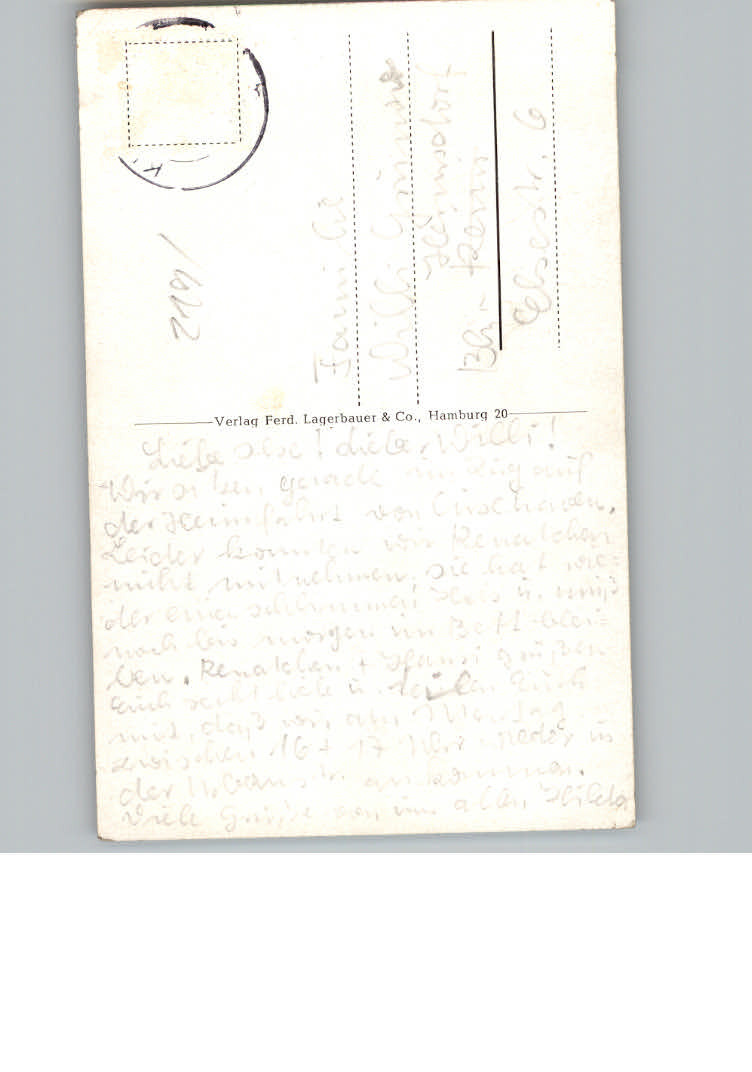 Familie
Willi
Hermsdorf
Bln.-
Elsestr. 6
2191
Verlag Ferd. Lagerbauer & Co., Hamburg 20
Liebe Else! Lieber Willi!
Wir sitzen gerade im Zug auf
der Heimfahrt von Cuxhaven.
Leider konnten wir Renatchen
nicht mitnehmen, sie hat wie=
der einen schlimmen Hals u. muß
noch bis morgen im Bett blei=
ben. Renatchen + Hansi grüßen
Euch recht lieb u. teilen Euch
mit, daß wir am Montag
zwischen 16 + 17 Uhr wieder in
der ankommen.
Viele Grüße von uns allen Hilda